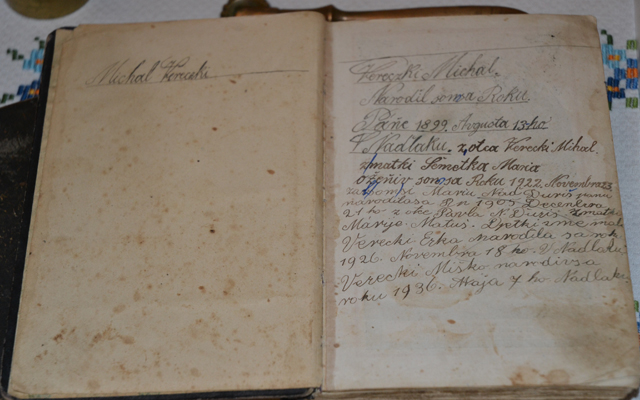 Michal Verecki
Vereczki Michal.
Narodil somsa Roku
Páňe 1899. Augusta 13-ho
V Nadlaku. z otca Verecki Mihal.
zmatki Semetka Maria
oženiv somsa Roku 1922 Novembra
Mariu Nad Duriš
narodilasa R n 1905 Decembra
21 ho z otc Pavla N Duriš zmatki
Maryo Matuš. Dietki zme mali
Verecki Erka narodila sa rok
1926. Novembra 18 ho. V Nadlaku
Verecki Miško narodivsa
roku 1936. Maja 7 ho. Nadlaku